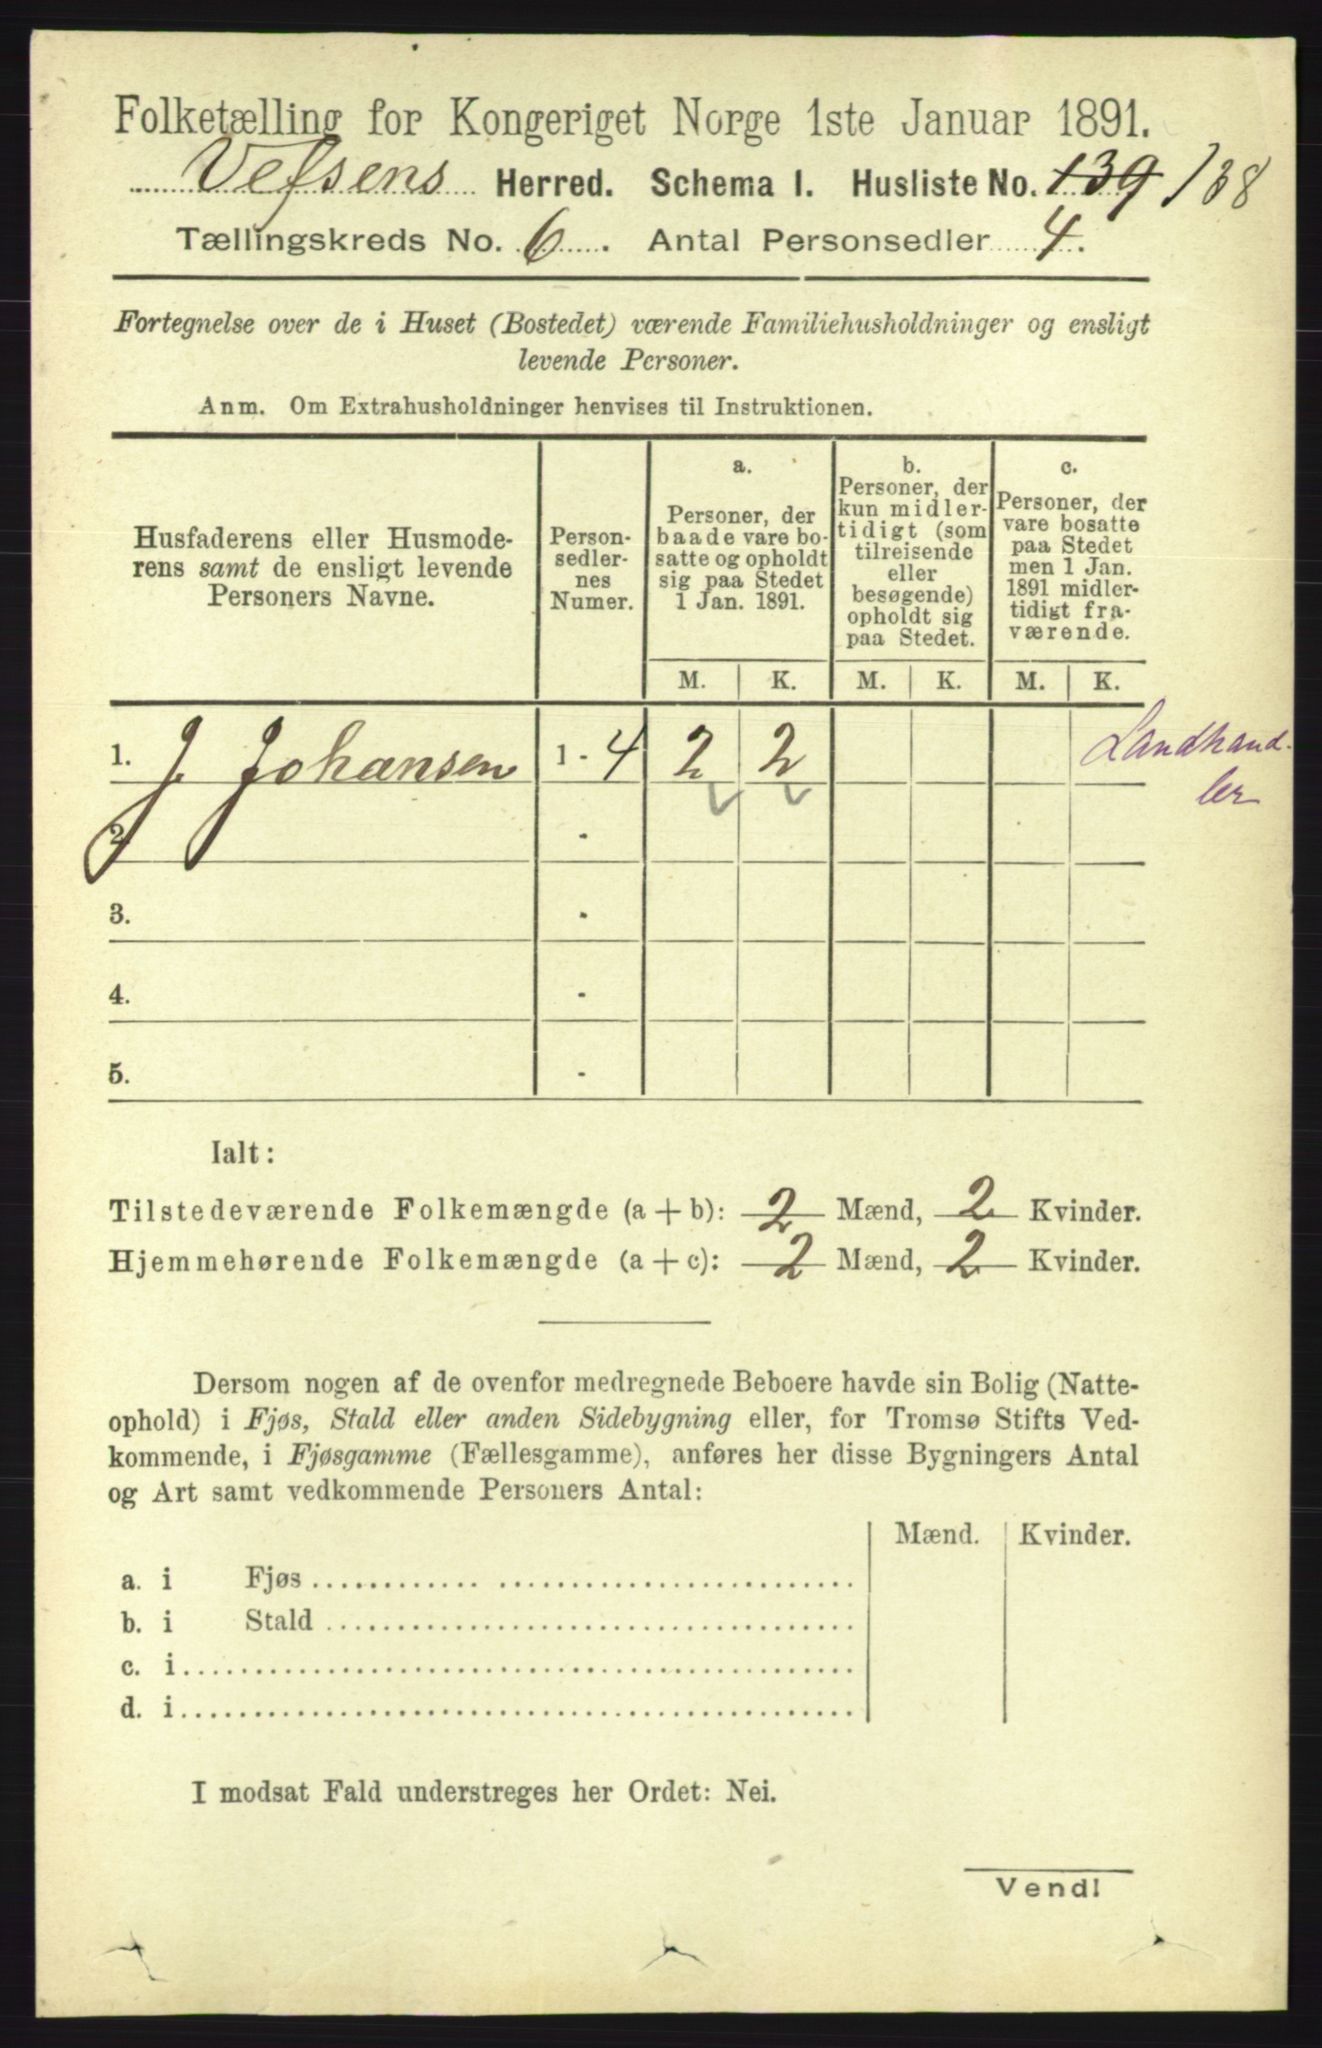 Folketælling for Kongeriget Norge 1ste Januar 1891.
Vefsens Herred. Schema I. Husliste No. 139 138
Tællingskreds No. 6. Antal Personsedler 4.
Fortegnelse over de i Huset (Bostedet) værende Familiehusholdninger og ensligt
levende Personer.
Anm. Om Extrahusholdninger henvises til Instruktionen.
Husfaderens eller Husmode-
rens samt de ensligt levende
Personers Navne.
Person-
sedler-
nes
Numer.
a.
Personer, der
baade vare bo-
satte og opholdt
sig paa Stedet
1 Jan. 1891.
b.
Personer, der
kun midler-
tidigt (som
tilreisende
eller
besøgende)
opholdt sig
paa Stedet.
c.
Personer, der
vare bosatte
paa Stedet
men 1 Jan.
1891 midler-
tidigt fra-
værende.
M. K. M. K. M. K.
1. J. Johansen 1 - 4 2 2 Landhand-
ler
2. -
3. -
4. -
5. -
Ialt:
Tilstedeværende Folkemængde (a + b): 2 Mænd, 2 Kvinder.
Hjemmehørende Folkemængde (a + c): 2 Mænd, 2 Kvinder.
Dersom nogen af de ovenfor medregnede Beboere havde sin Bolig (Natte-
ophold) i Fjøs, Stald eller anden Sidebygning eller, for Tromsø Stifts Ved-
kommende, i Fjøsgamme (Fællesgamme), anføres her disse Bygningers Antal
og Art samt vedkommende Personers Antal:
Mænd. Kvinder.
a. i Fjøs
b. i Stald
c. i
d. i
I modsat Fald understreges her Ordet: Nei.
Vend!